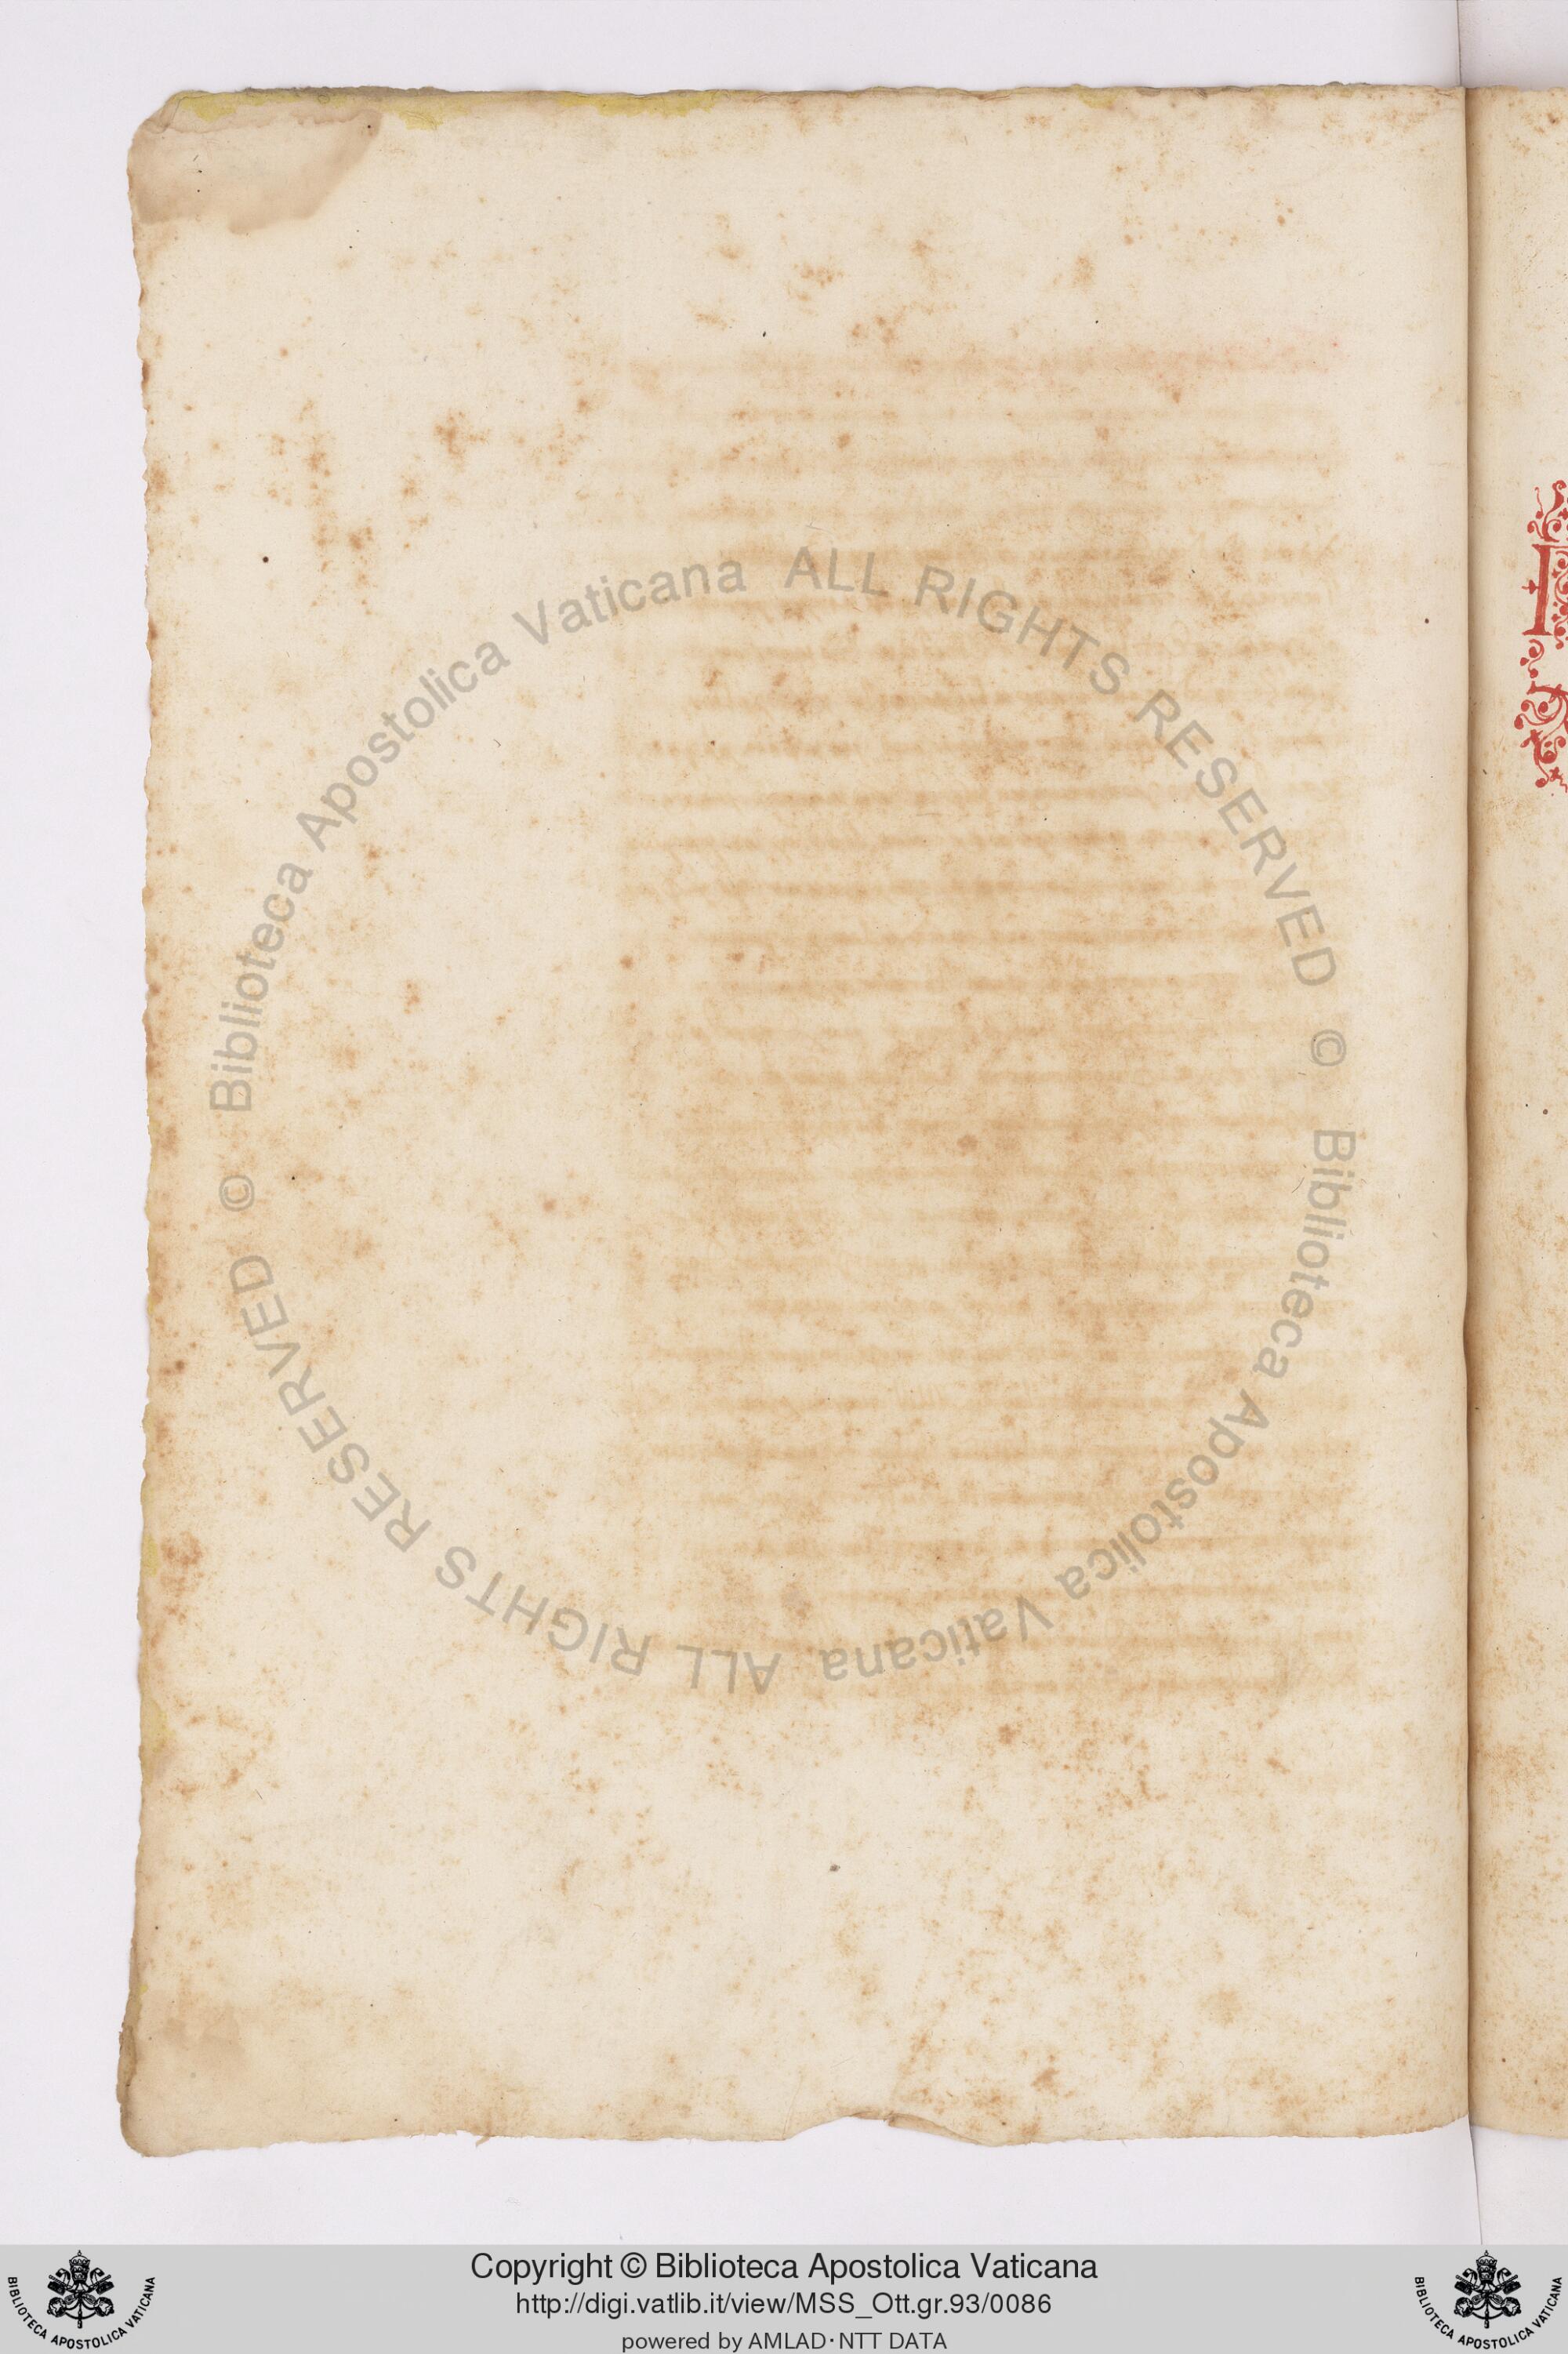 © Biblioteca Apostolica Vaticana ALL RIGHTS RESERVED
© Biblioteca Apostolica Vaticana ALL RIGHTS RESERVED
Copyright © Biblioteca Apostolica Vaticana
http://digi.vatlib.it/view/MSS_Ott.gr.93/0086
powered by AMLAD·NTT DATA
BIBLIOTECA APOSTOLICA VATICANA
BIBLIOTECA APOSTOLICA VATICANA